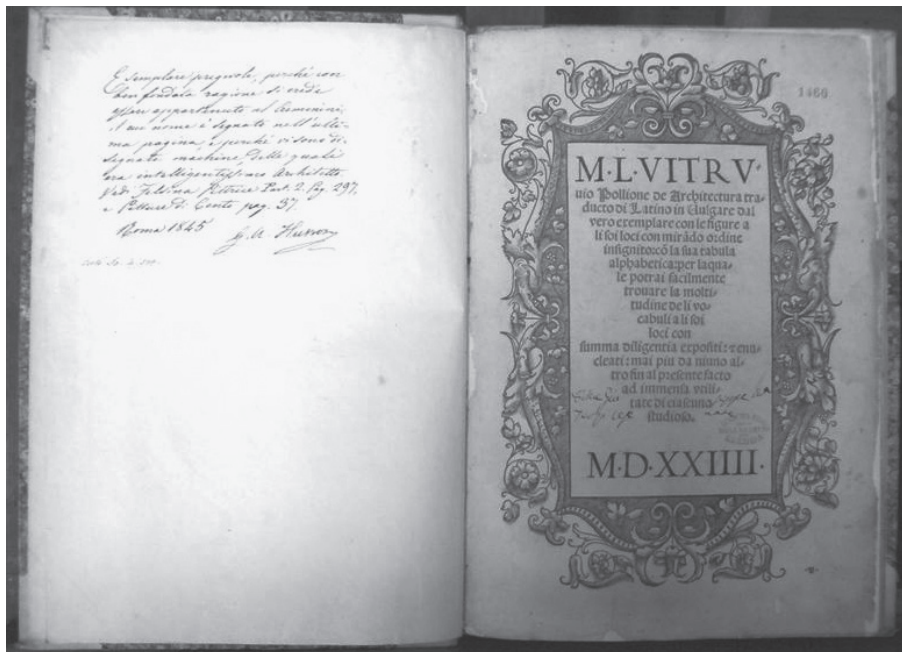 Esemplare pregevole, perché con
ben fondata ragione si crede
essere appartenuto al Cremonini,
il cui nome è segnato nell'ulti-
ma pagina, e perchè vi sono di-
segnate machine delle quali
era intelligentissimo Architetto.
Vedi Felsina Pittrice Part. 2. Pag. 297,
e Pitture di Cento pag. 57
Roma 1845
1460
M·L·VITRV·
uio Pollione de Architectura tra-
ducto di Latino in Vulgare dal
vero exemplare con le figure a
li soi loci con mirãdo ordine
insignito: cõ la sua tabula
alphabetica: per laqua-
le potrai facilmente
trouare la molti-
tudine de li vo-
cabuli a li soi
loci con
summa diligentia expositi: τ enu-
cleati: mai piu da niuno al-
tro fin al presente facto
ad immensa vtili-
tate di ciascuno
studioso.
M·D·XXIIII·